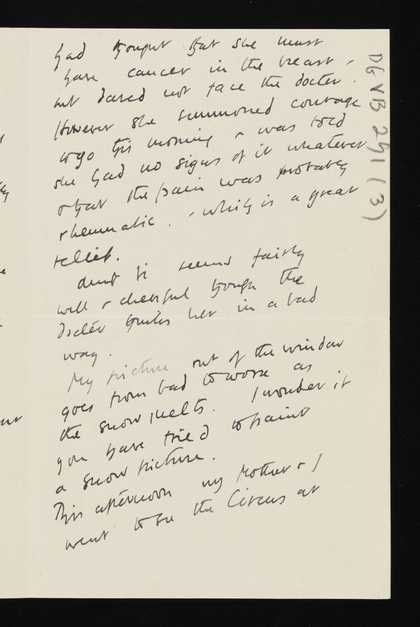 had thought that she must
have cancer in the breast,
but dared not face the doctor.
However she summoned courage
to go this morning & was told
she had no signs of it whatever
& that the pain was probably
rheumatic. - which is a great
relief.
Aunt B. seems fairly
well & cheerful though the
Doctor thinks her in a bad
way.
My picture out of the window
goes from bad to worse as
the snow melts. I wonder if
you have tried to paint
a snow picture.
This afternoon my Mother & I
went to see the Circus at
DG VB 291 (3)